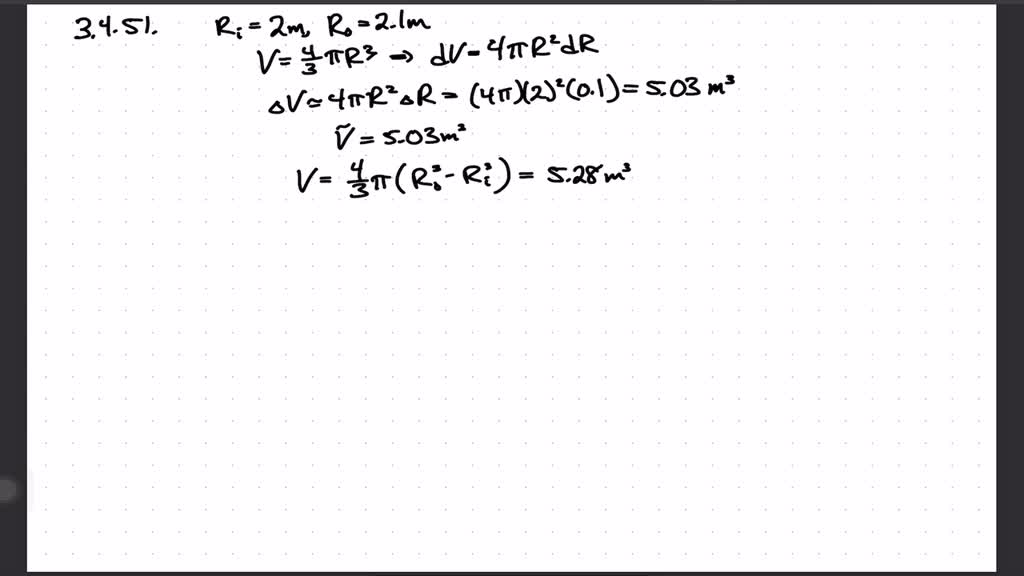 3.4.51. Ri = 2m, Ro = 2.1m
V = 4/3 πR³ → dV = 4πR²dR
ΔV ≈ 4πR²ΔR = (4π)(2)²(0.1) = 5.03 m³
Ṽ = 5.03m³
V = 4/3 π(Ro³ - Ri³) = 5.28 m³